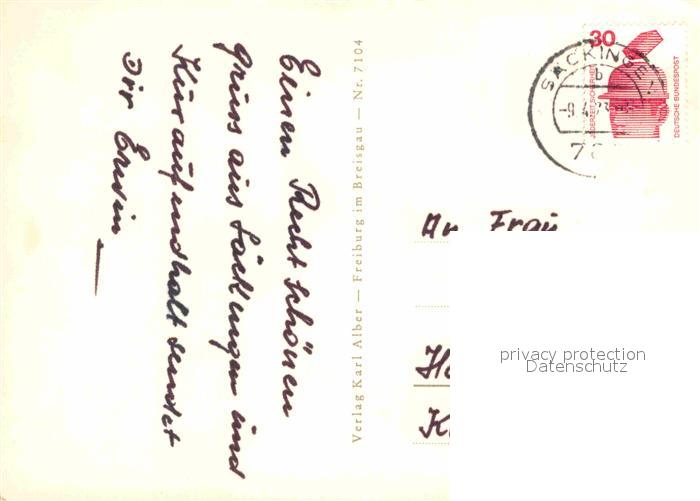 Einen Recht schönen
gruss aus Säckingen und
Kuraufendhalt sendet
Dir Erwin
Verlag Karl Alber — Freiburg im Breisgau — Nr. 7104
SÄCKINGEN
b
-9.4.73
78
30
JEDERZEIT SICHERHEIT
DEUTSCHE BUNDESPOST
An Frau
privacy protection
Datenschutz